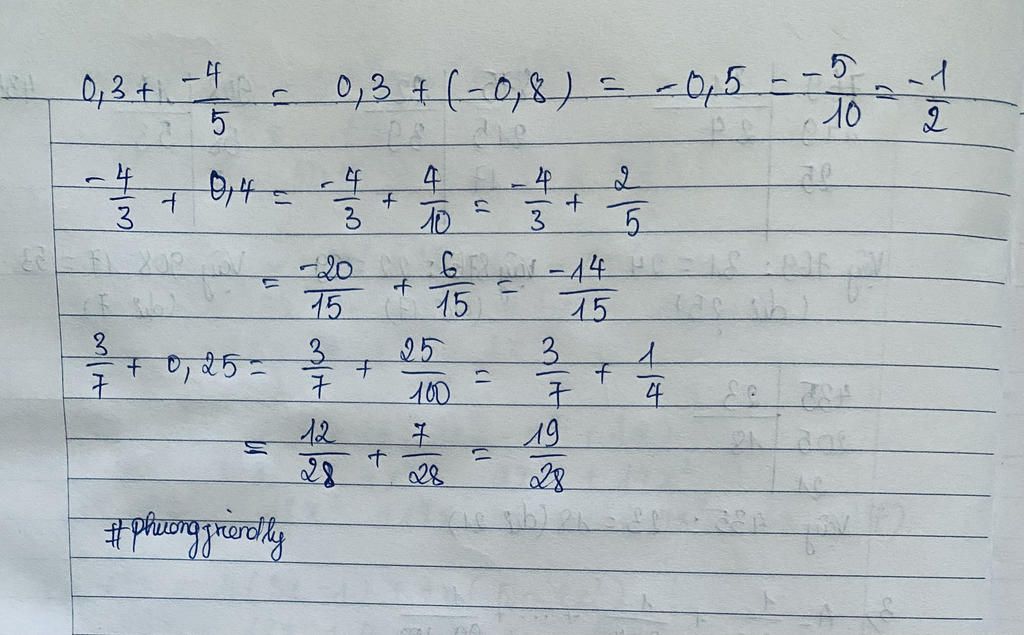 0,3 + -4/5 = 0,3 + (-0,8) = -0,5 = -5/10 = -1/2
-4/3 + 0,4 = -4/3 + 4/10 = -4/3 + 2/5
= -20/15 + 6/15 = -14/15
3/7 + 0,25 = 3/7 + 25/100 = 3/7 + 1/4
= 12/28 + 7/28 = 19/28
#phuongfriendly